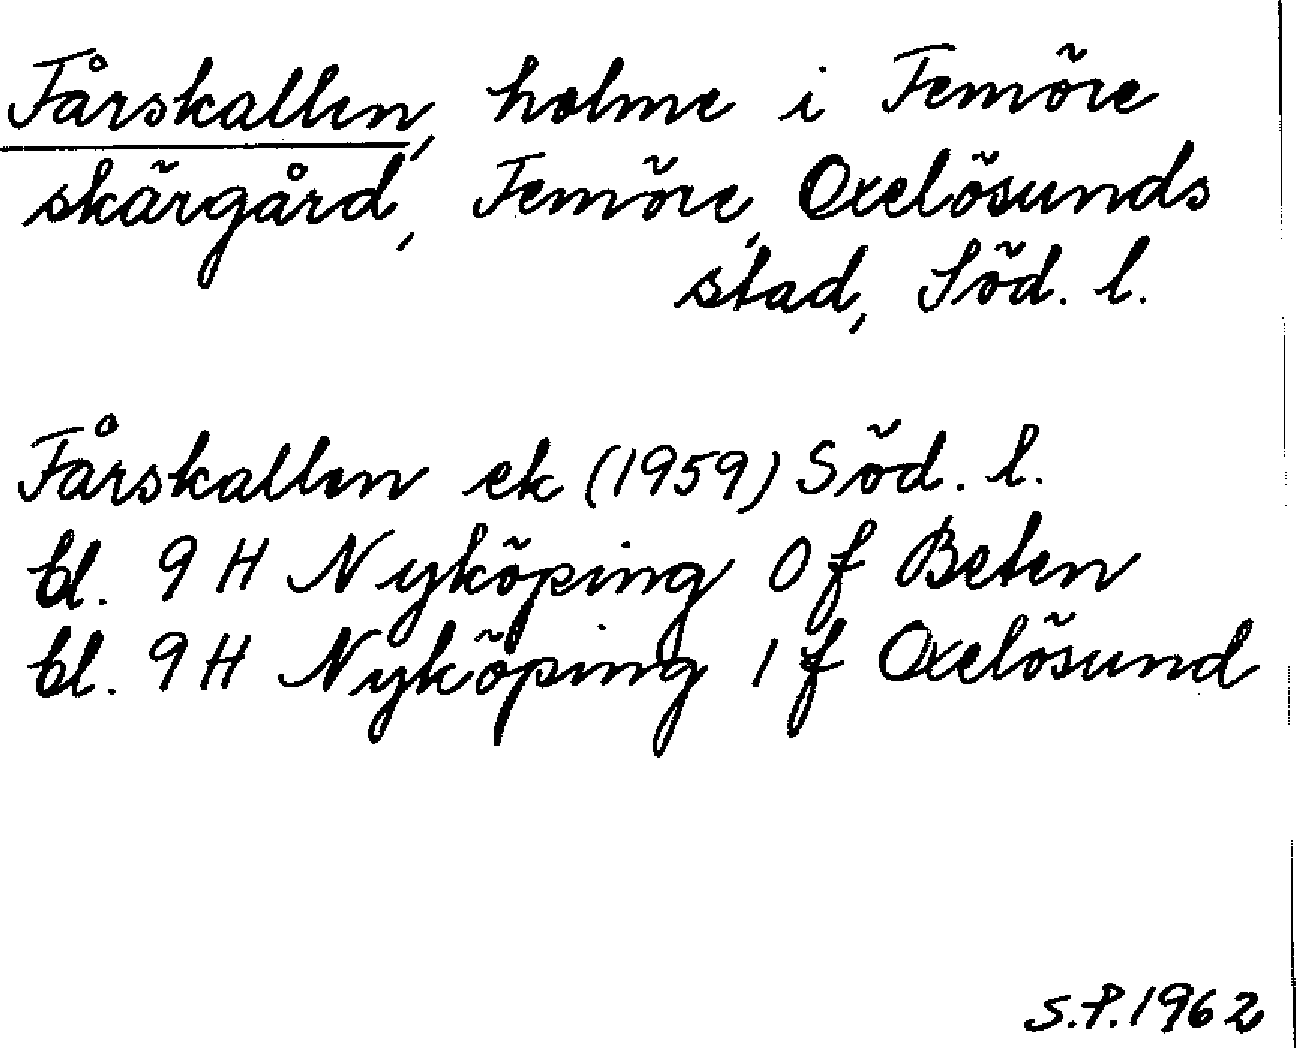 Fårskallen, holme i Femöre
skärgård, Femöre, Oxelösunds
stad, Söd. l.
Fårskallen ek (1959) Söd. l.
bl. 9 H Nyköping 0 f Beten
bl. 9 H Nyköping 1 f Oxelösund
S.P. 1962